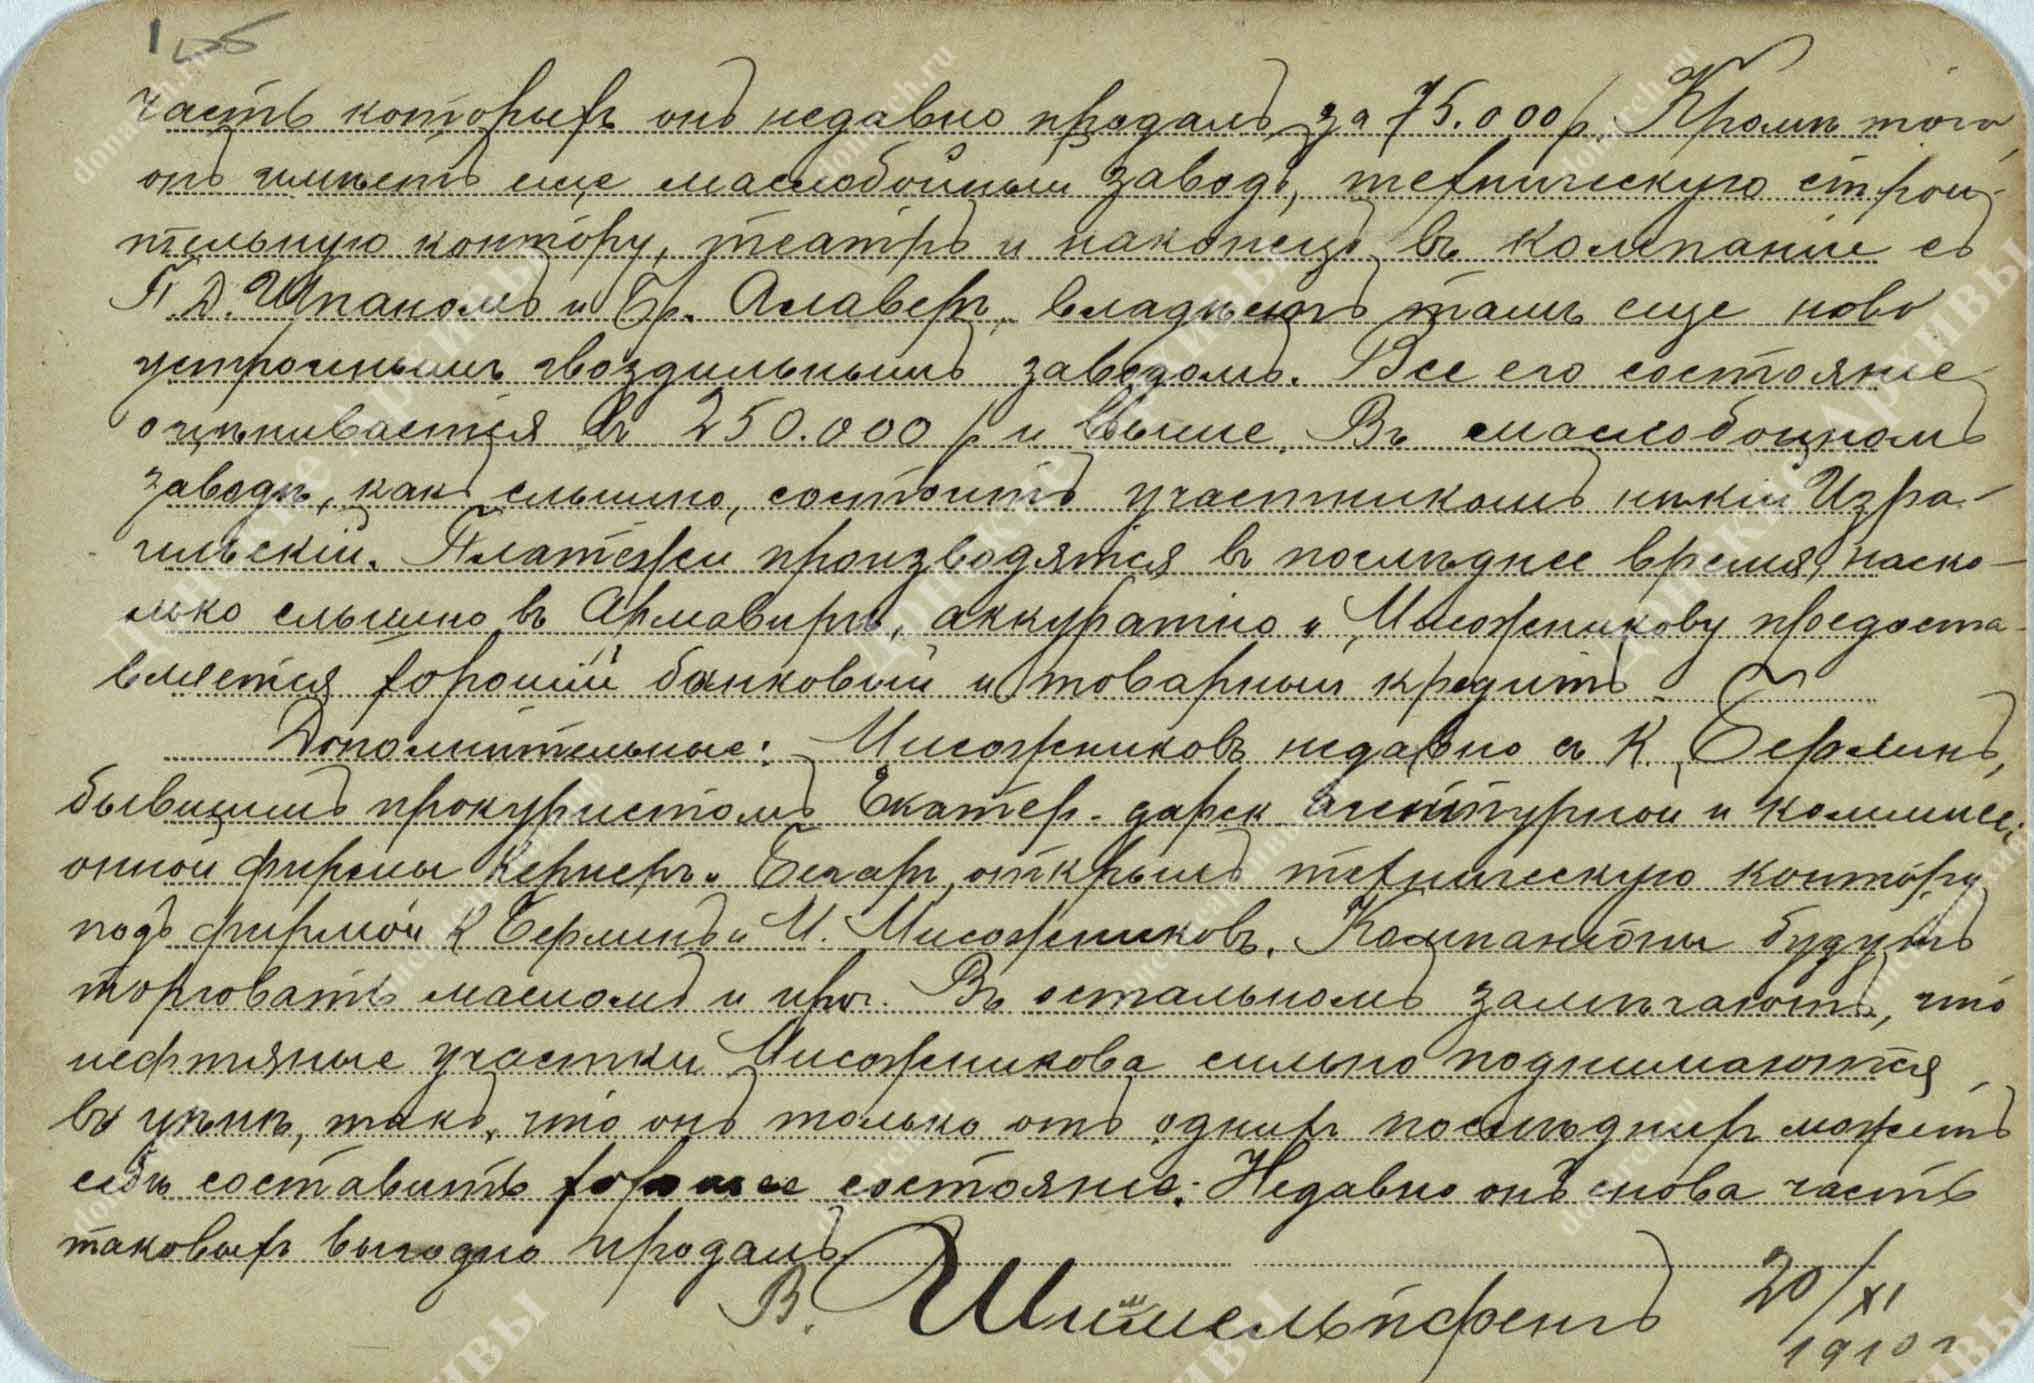 часть которыхъ онъ недавно продалъ за 75.000 р. Кромѣ того,
онъ имѣетъ еще маслобойный заводъ, техническую строи-
тельную контору, театръ и наконецъ въ компаніи съ
П. Д. Шпакомъ и Бр. Алаверъ, владѣетъ тамъ еще ново
устроеннымъ гвоздильнымъ заводомъ. Все его состояніе
оцѣнивается въ 250.000 р и выше. Въ маслобойномъ
заводѣ, какъ слышно, состоитъ участникомъ нѣкій Изра-
ильскій. Платежи производятся въ послѣднее время, наско-
лько слышно въ Армавирѣ, аккуратно и Мисожникову предоста-
вляется хорошій банковый и товарный кредитъ.
Дополнительные: Мисожниковъ недавно съ К. Берлинъ,
бывшимъ прокуристомъ Екатер-дарск. и коммисси-
онной фирмы Кернеръ и открылъ техническую контору
подъ фирмой К Берлинъ и И. Мисожниковъ. Компаніоны будутъ
торговать масломъ и проч. Въ остальномъ замѣчаютъ, что
нефтяные участки Мисожникова сильно поднимаются
въ цѣнѣ, такъ, что онъ только отъ однихъ послѣднихъ можетъ
себѣ составить хорошее состояніе. Недавно онъ снова часть
таковыхъ выгодно продалъ.
В. Шиммельпфенгъ 20/XI
1910 г
donarch.ru
Донские Архивы